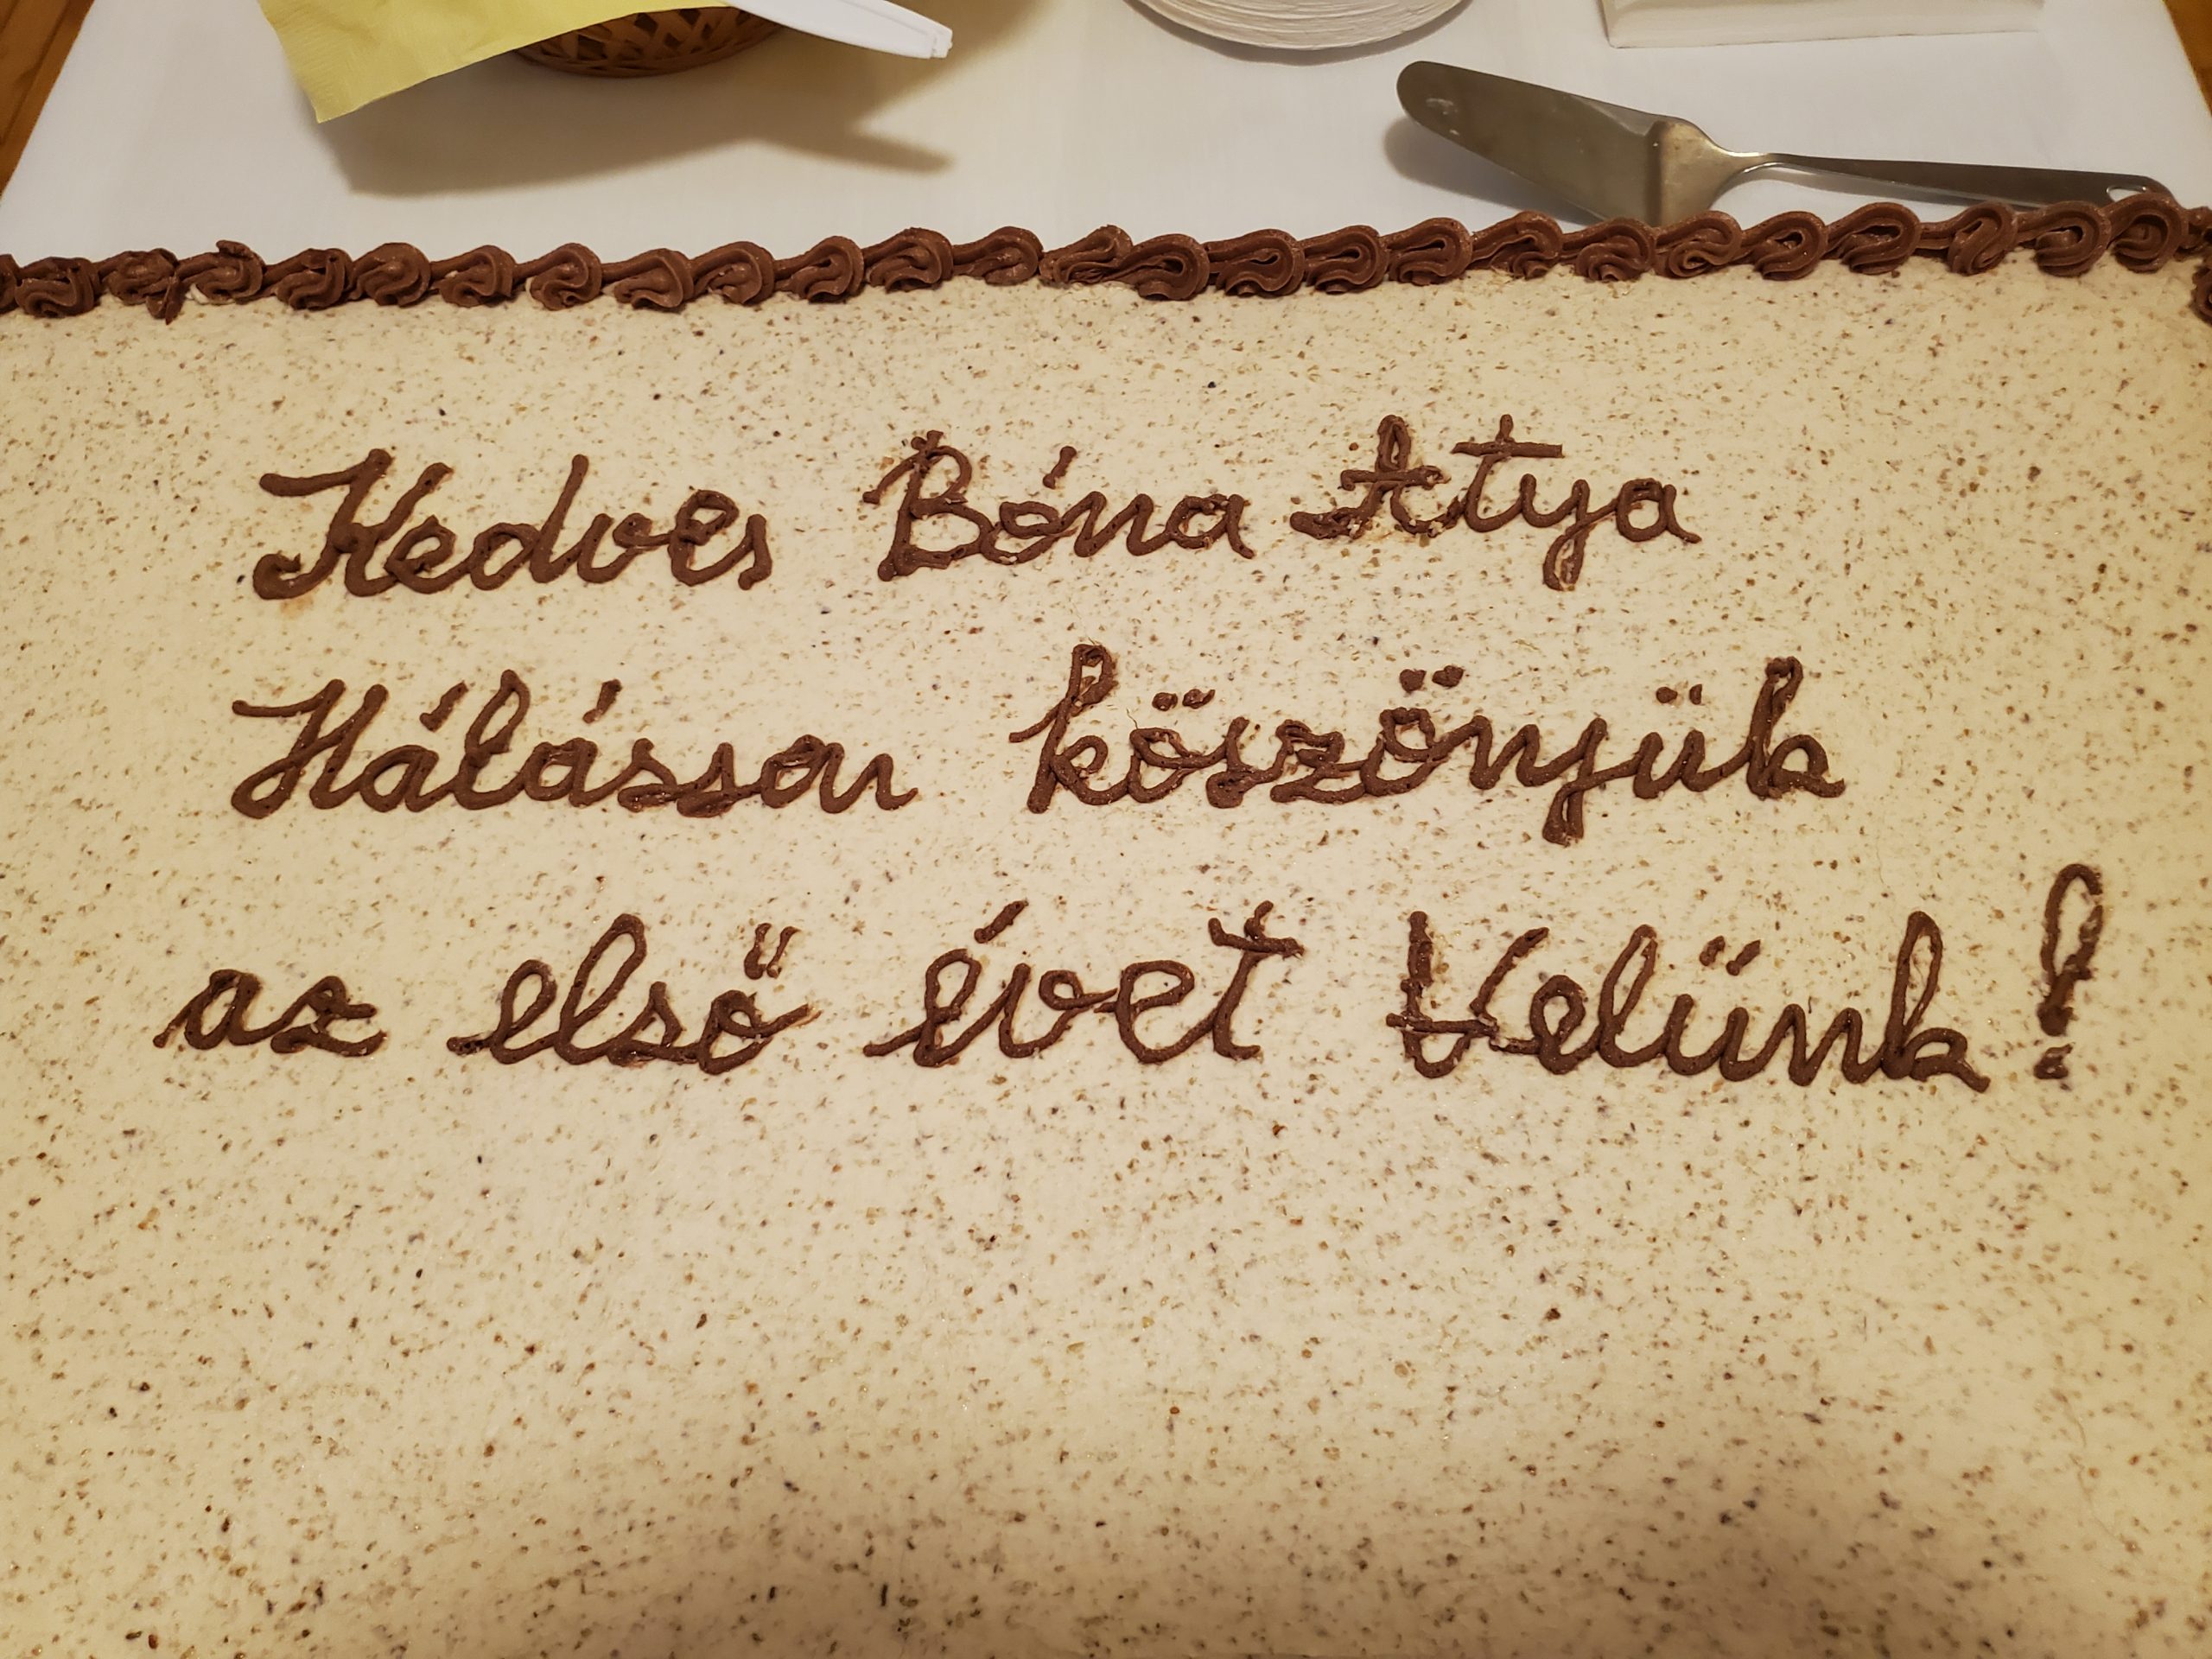 Kedves Bóna Atya
Hálásson köszönjük
az első évet Velünk!